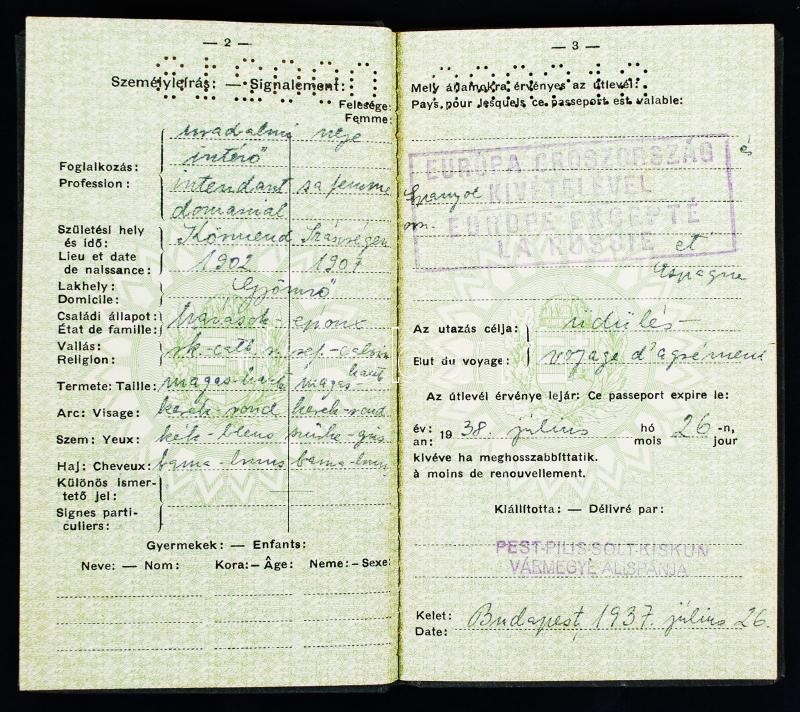 — 2 —
Személyleírás: — Signalement:
Felesége:
Femme:
uradalmi neje
Foglalkozás: intéző
Profession: intendant sa femme
domanial
Születési hely Körmend
és idő:
Lieu et date 1902 1901
de naissance:
Lakhely: Gyömrő
Domicile:
Családi állapot: házasok - époux
État de famille:
Vallás:
Religion: rk - cath.
Termete: Taille: magas - haute magas - haute
Arc: Visage: kerek - rond kerek - rond
Szem: Yeux: kék - bleus szürke - gris
Haj: Cheveux: barna - bruns barna - brun
Különös ismer-
tető jel:
Signes parti-
culiers:
Gyermekek: — Enfants:
Neve: — Nom: Kora: — Âge: Neme: — Sexe:
— 3 —
Mely államokra érvényes az útlevél:
Pays pour lesquels ce passeport est valable:
EURÓPA OROSZORSZÁG és
KIVÉTELÉVEL Spanyol
EUROPE EXCEPTÉ on.
LA RUSSIE et
Espagne
Az utazás célja: üdülés
But du voyage: voyage d'agrément
Az útlevél érvénye lejár: Ce passeport expire le:
év: 1938. július hó 26-n,
an: mois jour
kivéve ha meghosszabbíttatik.
à moins de renouvellement.
Kiállította: — Délivré par:
PEST-PILIS-SOLT-KISKUN
VÁRMEGYE ALISPÁNJA
Kelet: Budapest, 1937. július 26.
Date: